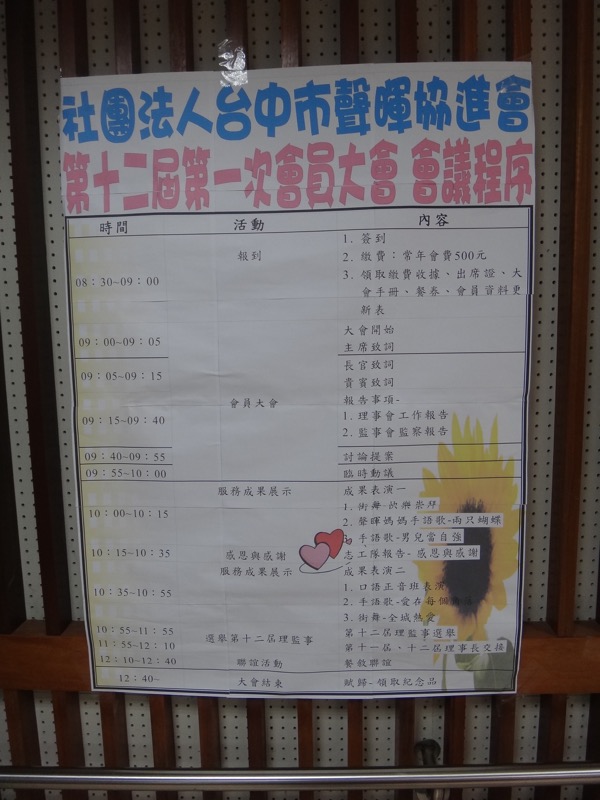 社團法人台中市聲暉協進會
第十二屆第一次會員大會 會議程序
時間 活動 內容
08：30~09：00 報到 1. 簽到
2. 繳費：常年會費500元
3. 領取繳費收據、出席證、大
會手冊、餐券、會員資料更
新表
09：00~09：05 大會開始
主席致詞
09：05~09：15 長官致詞
貴賓致詞
會員大會 報告事項-
09：15~09：40 1. 理事會工作報告
2. 監事會監察報告
09：40~09：55 討論提案
09：55~10：00 臨時動議
服務成果展示 成果表演一
10：00~10：15 1. 街舞-歡樂崇拜
2. 聲暉媽媽手語歌-兩只蝴蝶
手語歌-男兒當自強
10：15~10：35 感恩與感謝 志工隊報告-感恩與感謝
服務成果展示 成果表演二
10：35~10：55 1. 口語正音班表演
2. 手語歌-愛在每個
3. 街舞-全城熱愛
10：55~11：55 選舉第十二屆理監事 第十二屆理監事選舉
11：55~12：10 第十一屆、十二屆理事長交接
12：10~12：40 聯誼活動 餐敘聯誼
12：40~ 大會結束 賦歸-領取紀念品